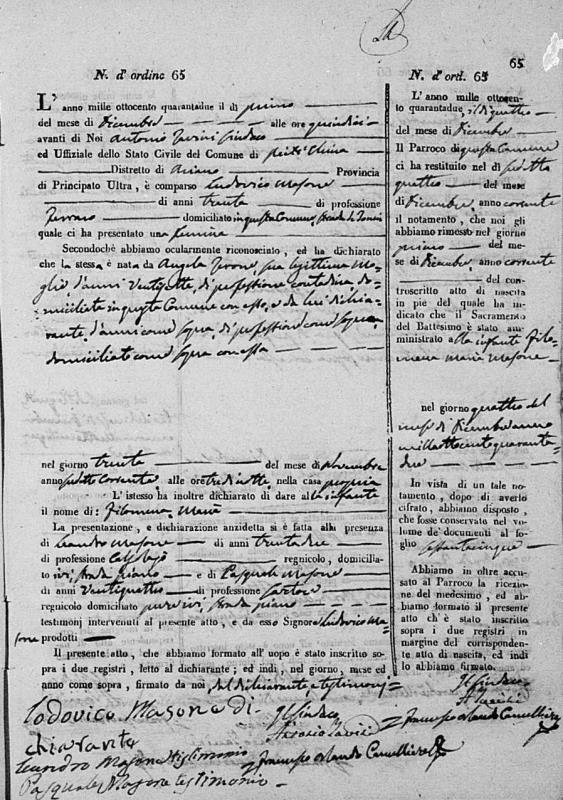 65
N. d'ordine 65
L'anno mille ottocento quarantadue il dì primo
del mese di Dicembre alle ore quindici
avanti di Noi Antonio Sindaco
ed Uffiziale dello Stato Civile del Comune di
Distretto di Ariano Provincia
di Principato Ultra, è comparso Ludovico Masone
di anni trenta di professione
Ferraro domiciliato in questa Comune, strada
quale ci ha presentato una femina
Secondochè abbiamo ocularmente riconosciuto, ed ha dichiarato
che la stessa è nata da Angela sua legittima Mo-
glie d'anni ventisette, di professione contadina, do-
miciliata in questo Comune con esso, e da lui dichia-
rante, d'anni come sopra, di professione come sopra,
domiciliato come sopra con essa
nel giorno trenta del mese di Novembre
anno sudetto corrente alle ore tredici nella casa propria
L'istesso ha inoltre dichiarato di dare alla infante
il nome di: Filomena Maria
La presentazione, e dichiarazione anzidetta si è fatta alla presenza
di Leandro Masone di anni trentadue
di professione regnicolo, domicilia-
to ivi, strada piano e di Pasquale Masone
di anni ventiquattro di professione Sartore
regnicolo domiciliato pure ivi, strada piano
testimonj intervenuti al presente atto, e da esso Signore Ludovico Ma-
sone prodotti
Il presente atto, che abbiamo formato all' uopo è stato inscritto so-
pra i due registri, letto al dichiarante; ed indi, nel giorno, mese ed
anno come sopra, firmato da noi dal dichiarante e testimonj
Lodovico Masone di
chiarante
Leandro Masone testimonio
Pasquale Masone testimonio
Il Sindaco
N. d'ord. 65
L'anno mille ottocen-
to quarantadue, il dì quattro
del mese di Dicembre
Il Parroco di questa Comune
ci ha restituito nel dì sudetto
quattro del mese
di Dicembre, anno corrente
il notamento, che noi gli
abbiamo rimesso nel giorno
primo del me-
se di Dicembre, anno corrente
del con-
troscritto atto di nascita
in piè del quale ha in-
dicato che il Sacramento
del Battesimo è stato am-
ministrato alla infante Filo-
mena Maria Masone
nel giorno quattro del
mese di Dicembre anno
mille ottocento quaranta-
due
In vista di un tale no-
tamento, dopo di averlo
cifrato, abbiamo disposto,
che fosse conservato nel vo-
lume de' documenti al fo-
glio sessantacinque
Abbiamo in oltre accu-
sato al Parroco la ricezio-
ne del medesimo, ed ab-
biamo formato il presente
atto ch'è stato inscritto
sopra i due registri in
margine del corrisponden-
te atto di nascita, ed indi
lo abbiamo firmato.
Il Sindaco